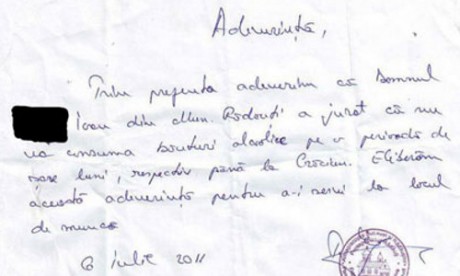 Adeverință,
Prin prezenta adeverim că Domnul
Ioan din Mun. Rădăuți a jurat că nu
va consuma băuturi alcolice pe o perioadă de
șase luni, respectiv până la Crăciun. Eliberăm
această adeverință pentru a-i servi la locul
de muncă
6 iulie 2011